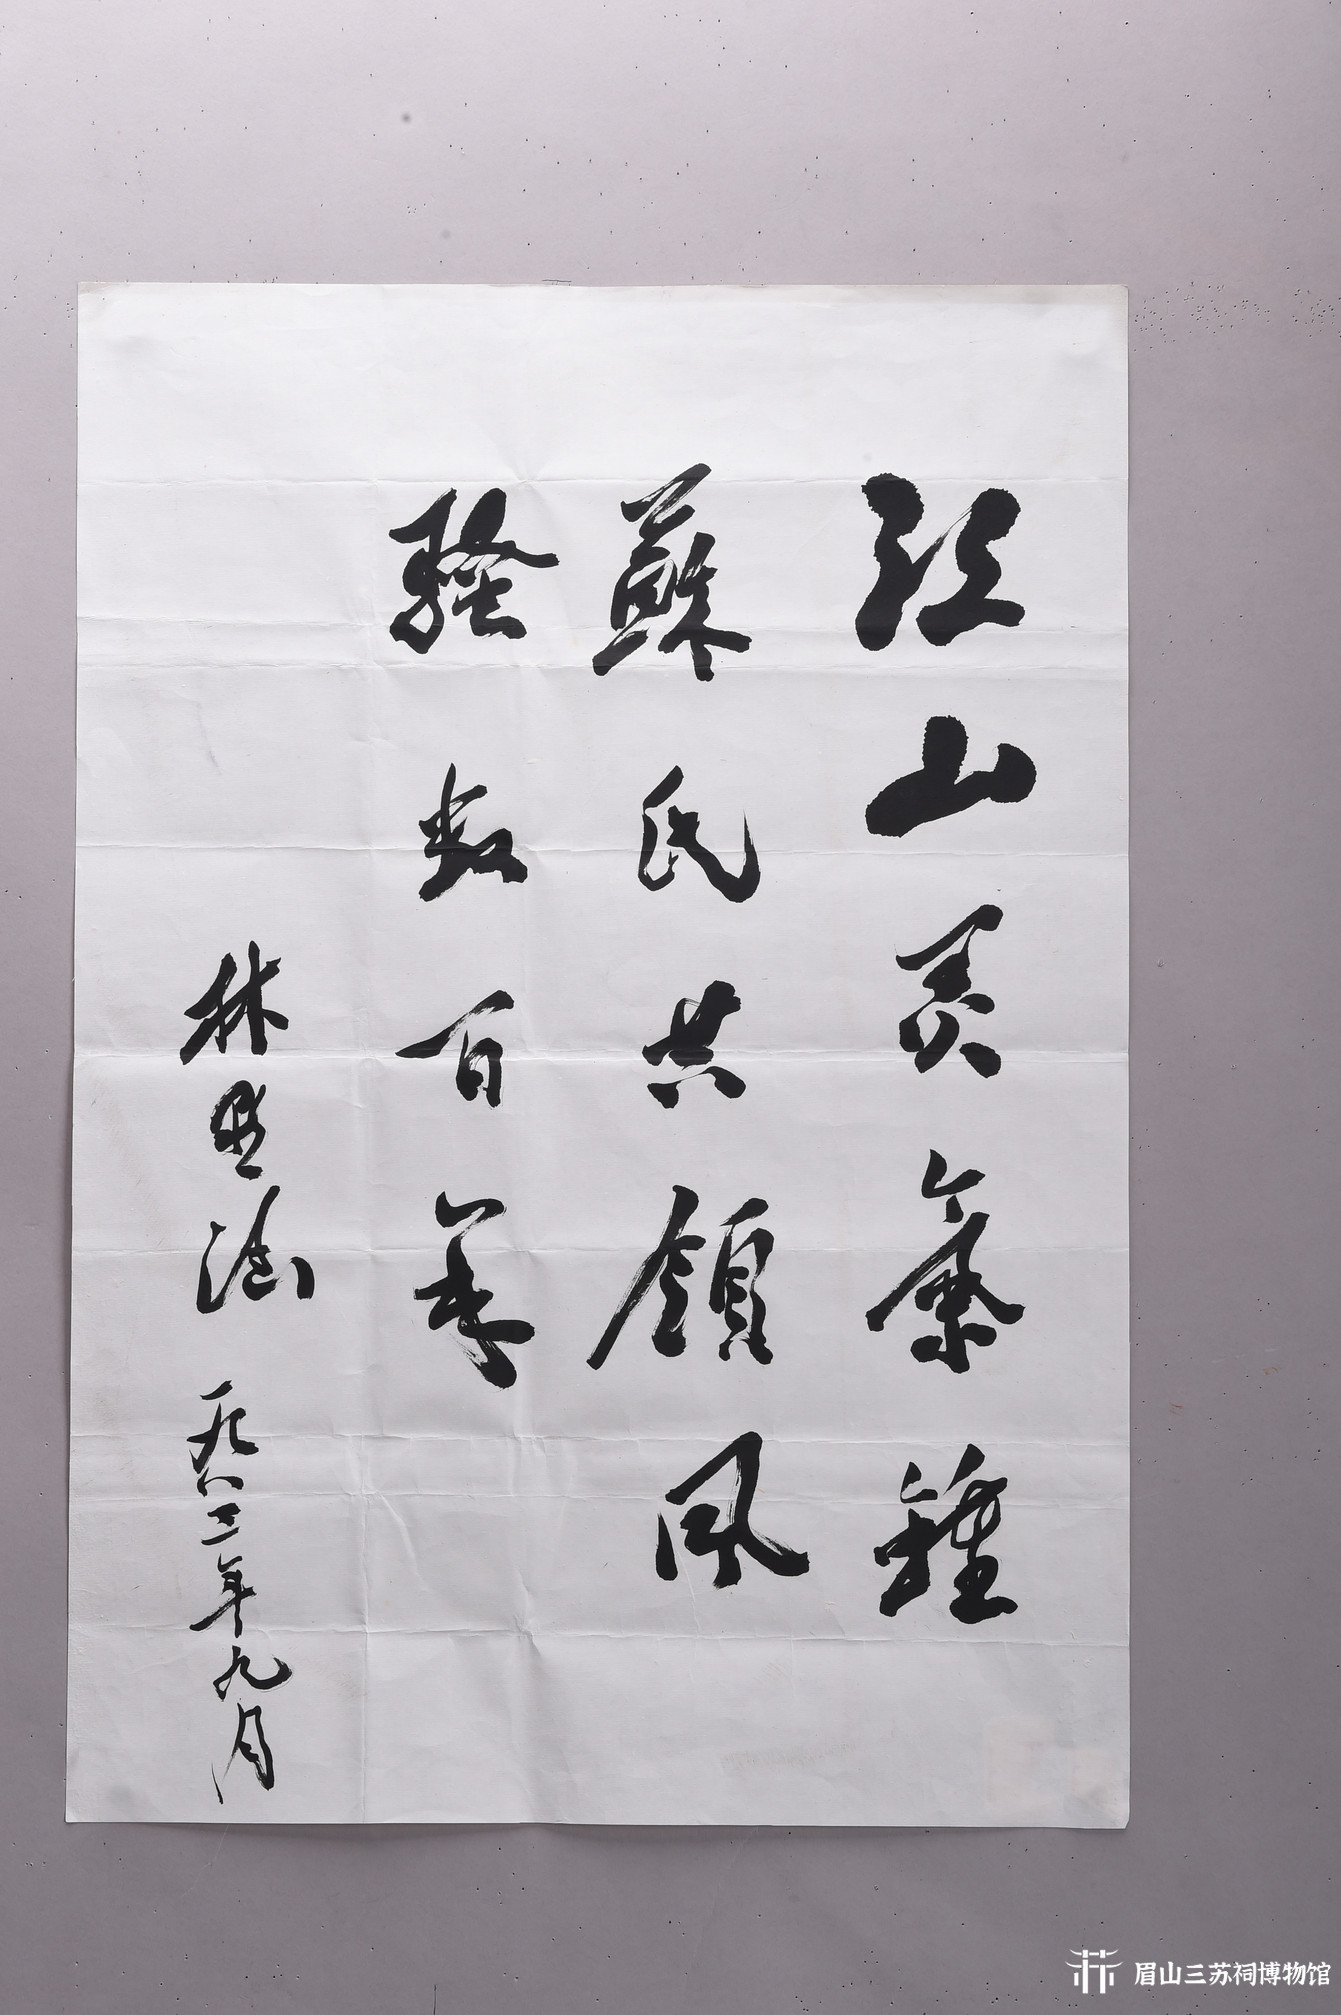 江山灵气锺
蘇氏共领风
骚数百年
林默涵 一九八二年九月
眉山三苏祠博物馆